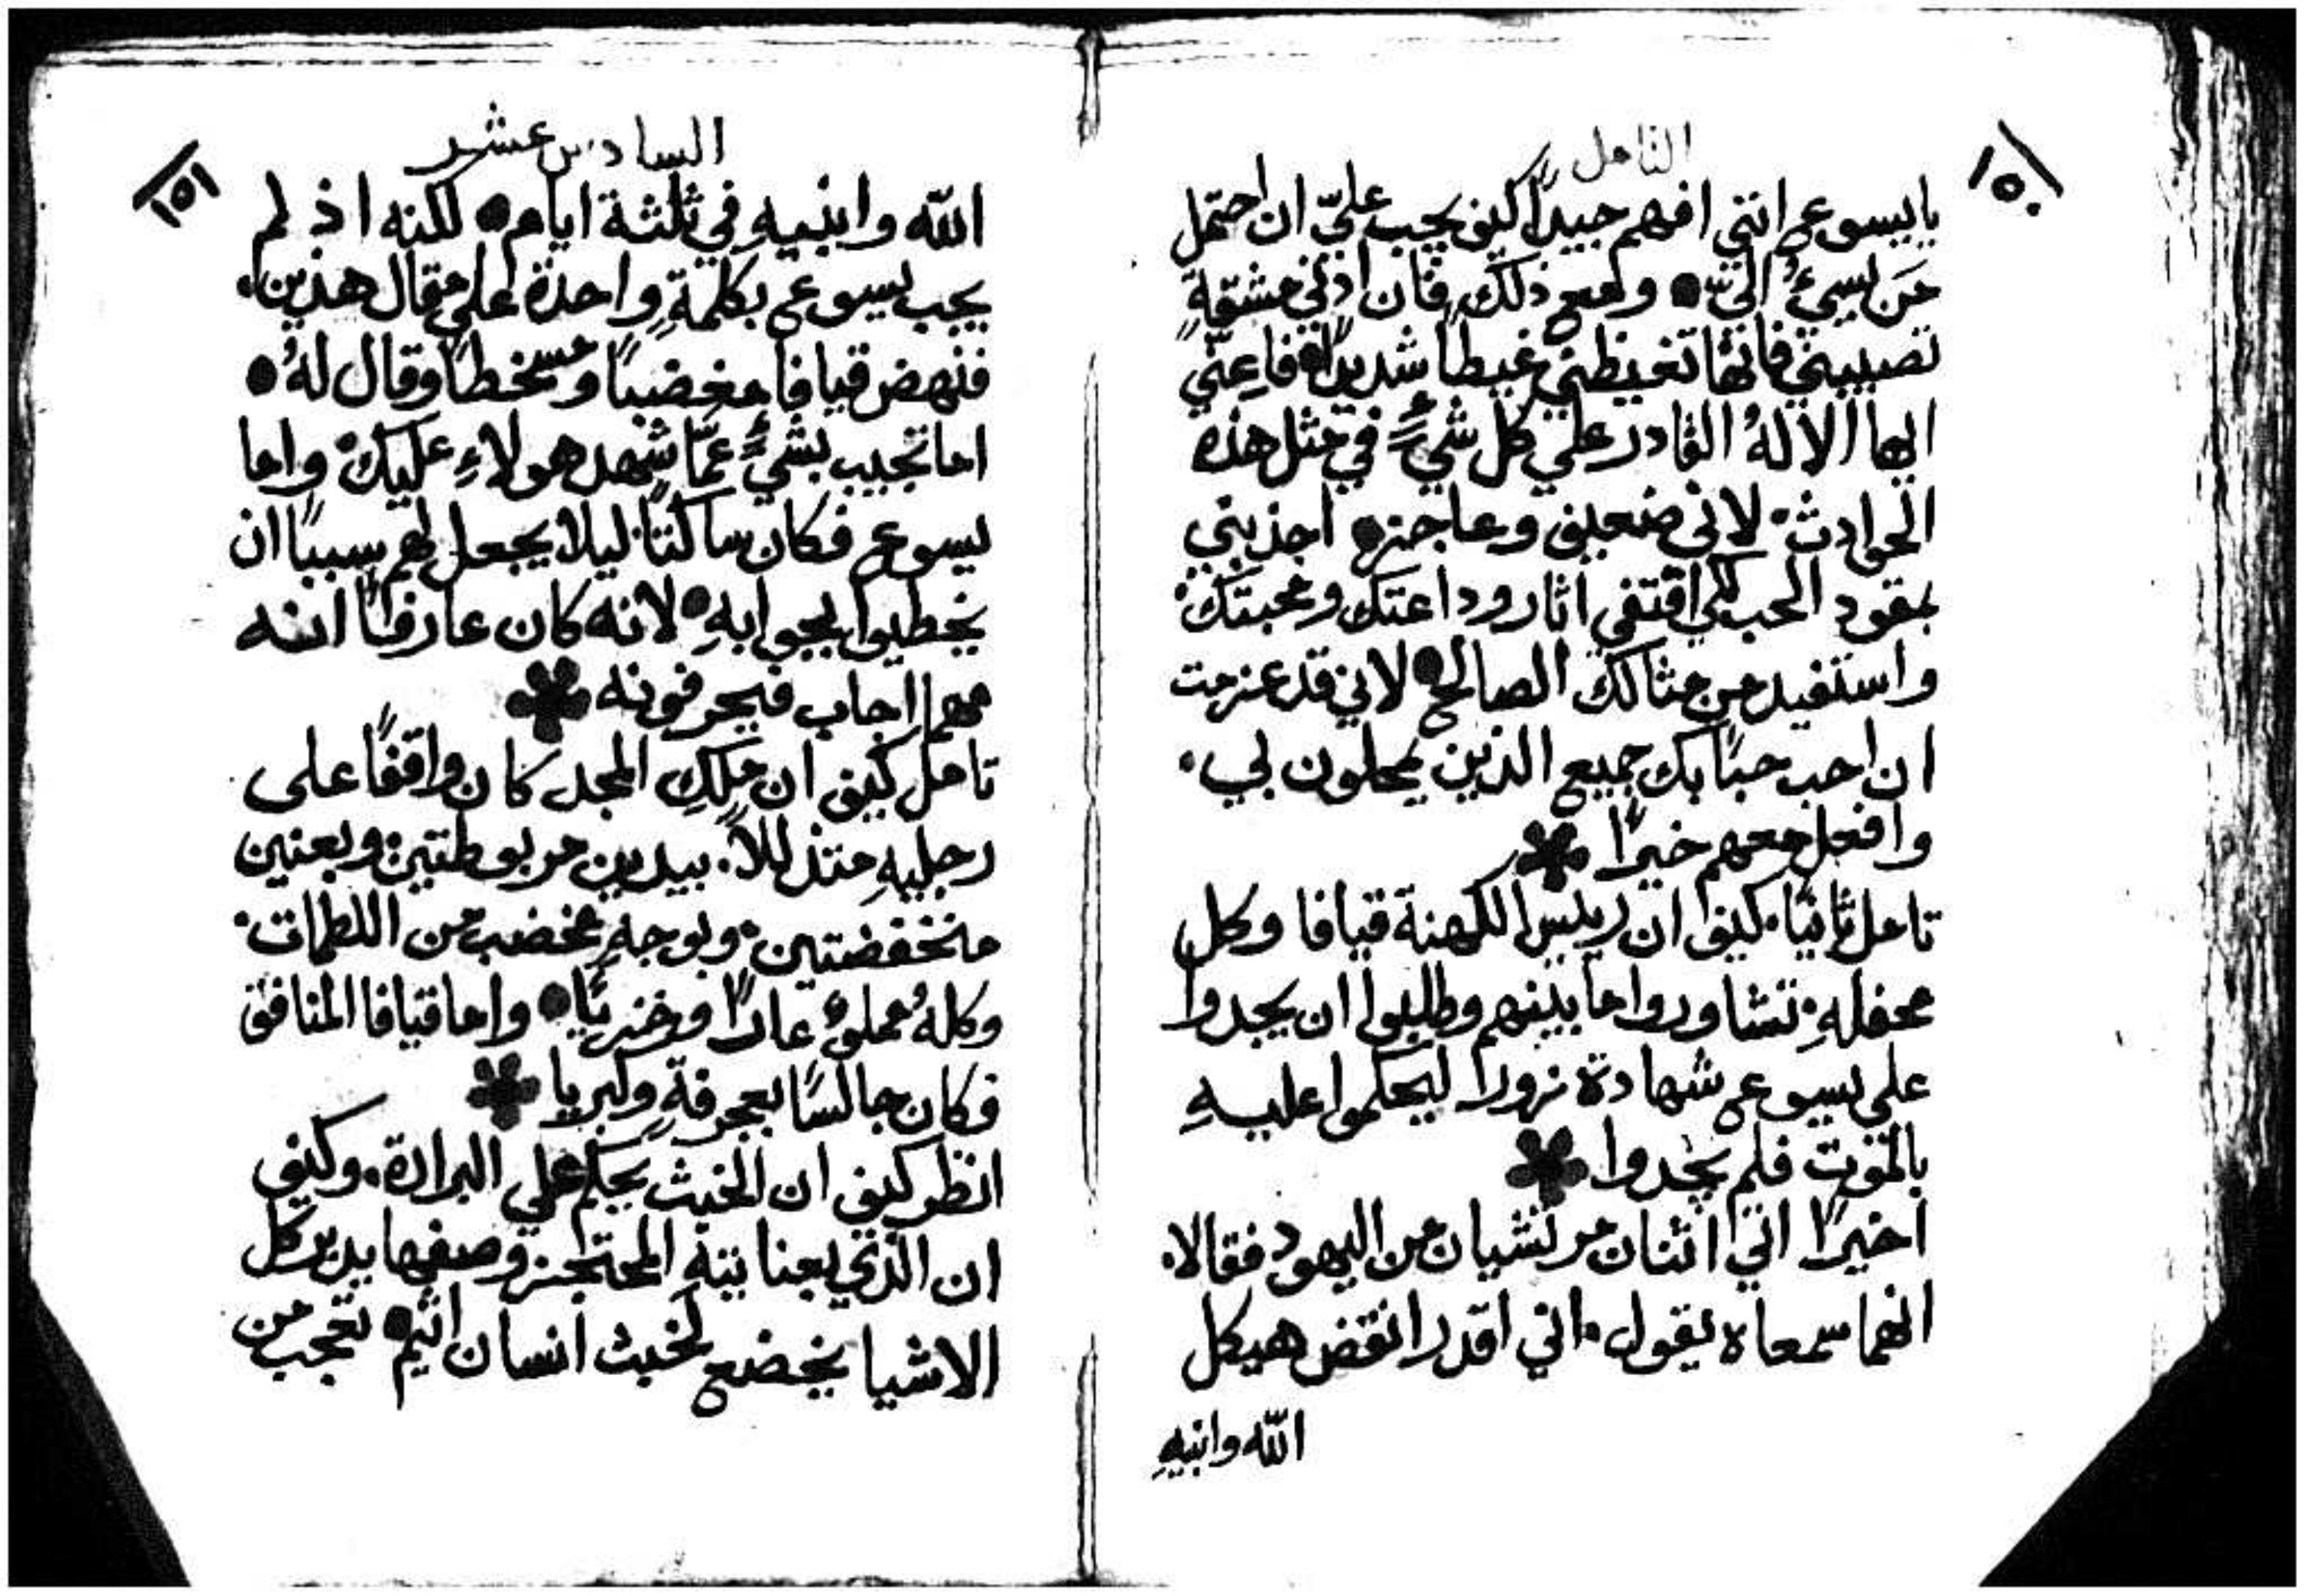 التامل
١٥٠
يا يسوع انني افهم جيدًا كيف يجب عليّ ان احتمل
من يسيءُ اليّ • ومع ذلك فان ادني مشقةٍ
تصيبني فانها تغيظني غيظًا شديدًا • فاعنّي
ايها الالهُ القادر علي كل شيءٍ في مثل هذه
الحوادث • لاني ضعيف وعاجز • اجذبني
بقود الحب لكي اقتفي اثار وداعتك ومحبتك •
واستفيد من مثالك الصالح • لاني قد عزمت
ان احب حبًا بك جميع الذين يحملون بي •
وافعل معهم خيرًا
تامل ثانيًا • كيف ان رييس الكهنة قيافا وكل
محفلهِ • تشاوروا ما بينهم وطلبوا ان يجدوا
علي يسوع شهادة زورًا ليحكموا عليهِ
بالموت فلم يجدوا
اخيرًا اتي اثنان مرتشيان من اليهود فقالا •
انهما سمعاه يقول • اني اقدر انقض هيكل
الله وابنيهِ
السادس عشر
١٥١
الله وابنيهِ في ثلثة ايام • لكنه اذ لم
يجب يسوع بكلمةٍ واحدة علي مقال هذين •
فنهض قيافا مغضبًا ومسخطًا وقال لهُ •
اما تجيب بشيءٍ عمّا شهد هولاءِ عليك • واما
يسوع فكان ساكتًا ليلا يجعل لهم سببًا ان
يخطيوا بجوابهِ • لانه كان عارفًا انه
مهما اجاب فيحرفونه
تامل كيف ان ملكِ المجد كان واقفًا على
رجليهِ متذللاً • بيدين مربوطتين • وبعنين
منخفضتين • وبوجهٍ مخضب من اللطمات •
وكلهُ مملوءً عارًا وخزيًا • واما قيافا المنافق
فكان جالسًا بعجرفةٍ وكبريا
انظر كيف ان الخبث يحكم علي البرارة • وكيف
ان الذي بعنايتهِ المحتجز وصفها يدبر كل
الاشيا يخضع لخبث انسان اثيم • تعجب من